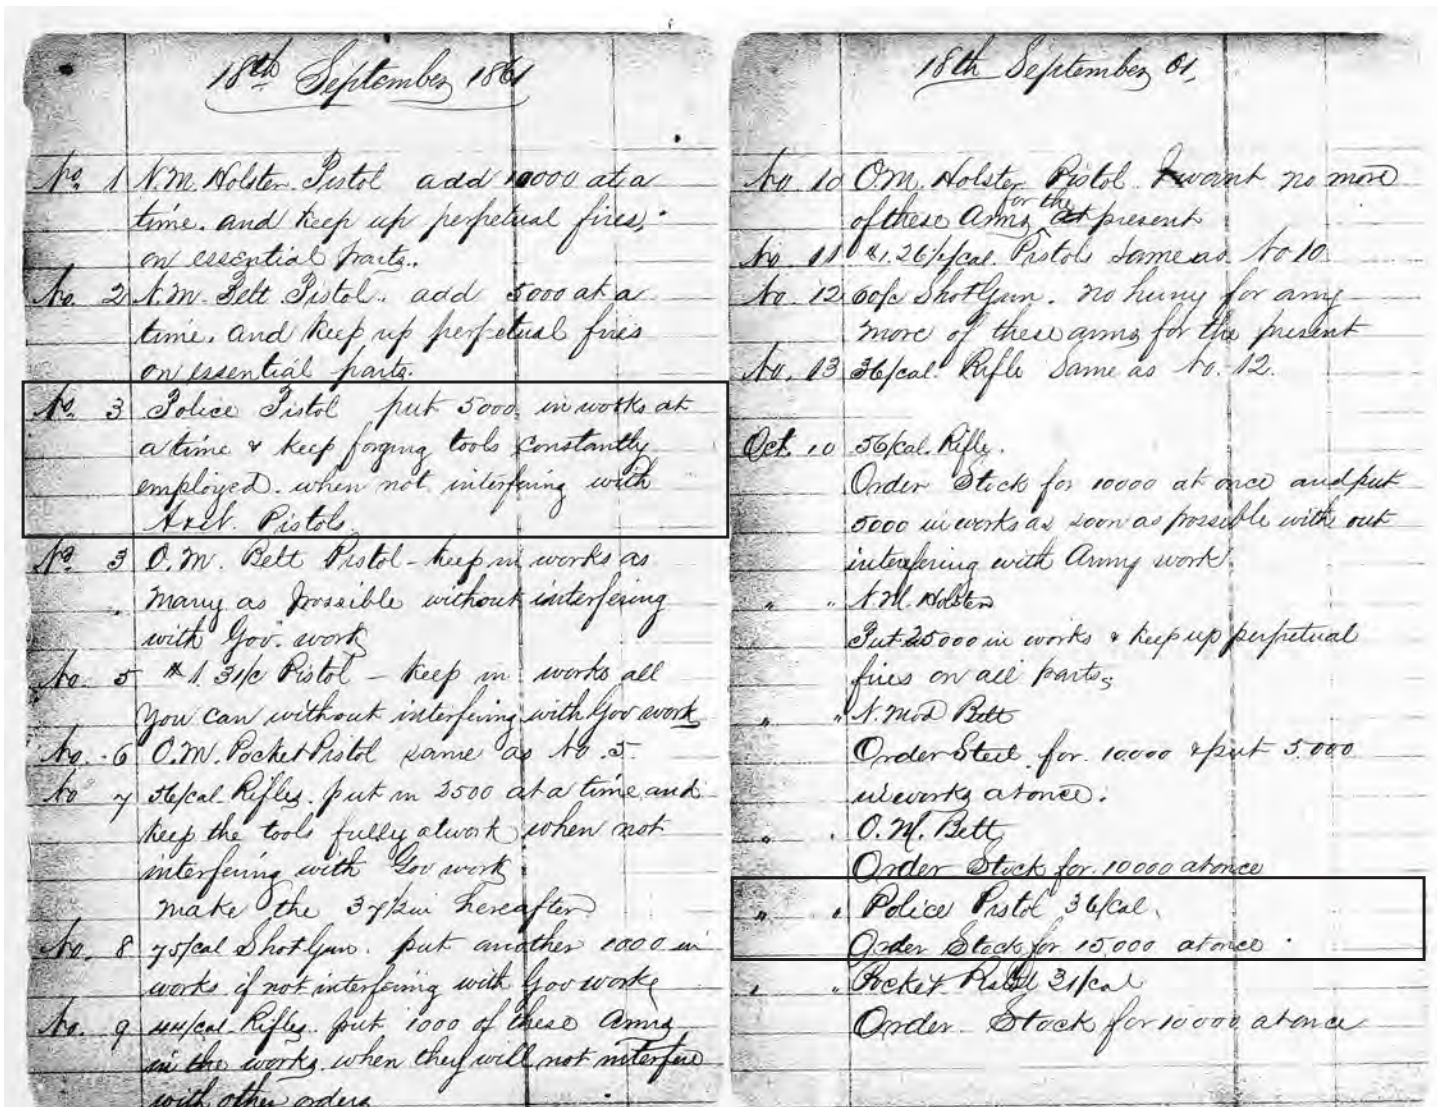 18th September 1861
No. 1 N.M. Holster Pistol add 10000 at a
time. and keep up perpetual fires,
on essential parts.
No. 2 N.M. Belt Pistol. add 5000 at a
time. and keep up perpetual fires
on essential parts.
No. 3 Police Pistol put 5000 in works at
a time & keep forging tools constantly
employed. when not interfering with
Pistols.
No. 3 O.M. Belt Pistol - keep in works as
many as possible without interfering
with Gov. work
No. 5 #1. 31/c Pistol - keep in works all
you can without interfering with Gov work
No. 6 O.M. Pocket Pistol same as No. 5
No 7 56/cal. Rifles. put in 2500 at a time and
keep the tools fully at work when not
interfering with Gov work.
make the 37 1/2 in hereafter
No. 8 75/cal Shot Gun. put another 1000 in
works if not interfering with Gov work
No. 9 44/cal Rifles. put 1000 of these Arms
in the works when they will not interfere
with other orders
18th September 61,
No 10 O.M. Holster Pistol want no more
of these Arms for the present
No 11 #1. 26 1/2/cal. Pistols Same as No 10
No. 12 60/c Shot Gun. no hurry for any
more of these arms for the present
No. 13 36/cal. Rifle Same as No. 12.
Oct. 10 56/cal. Rifle.
Order Stock for 10000 at once and put
5000 in works as soon as possible with out
interfering with Army work
" " N.M. Holster
Put 25000 in works & keep up perpetual
fires on all parts,
" " N. Mod Belt
Order Steel for 10.000 & put 5.000
in works at once.
" " O.M. Belt
Order Stock for 10000 at once
" " Police Pistol 36/cal.
Order Stock for 15,000 at once.
" " Pocket Pistol 31/cal
Order Stock for 10000 at once